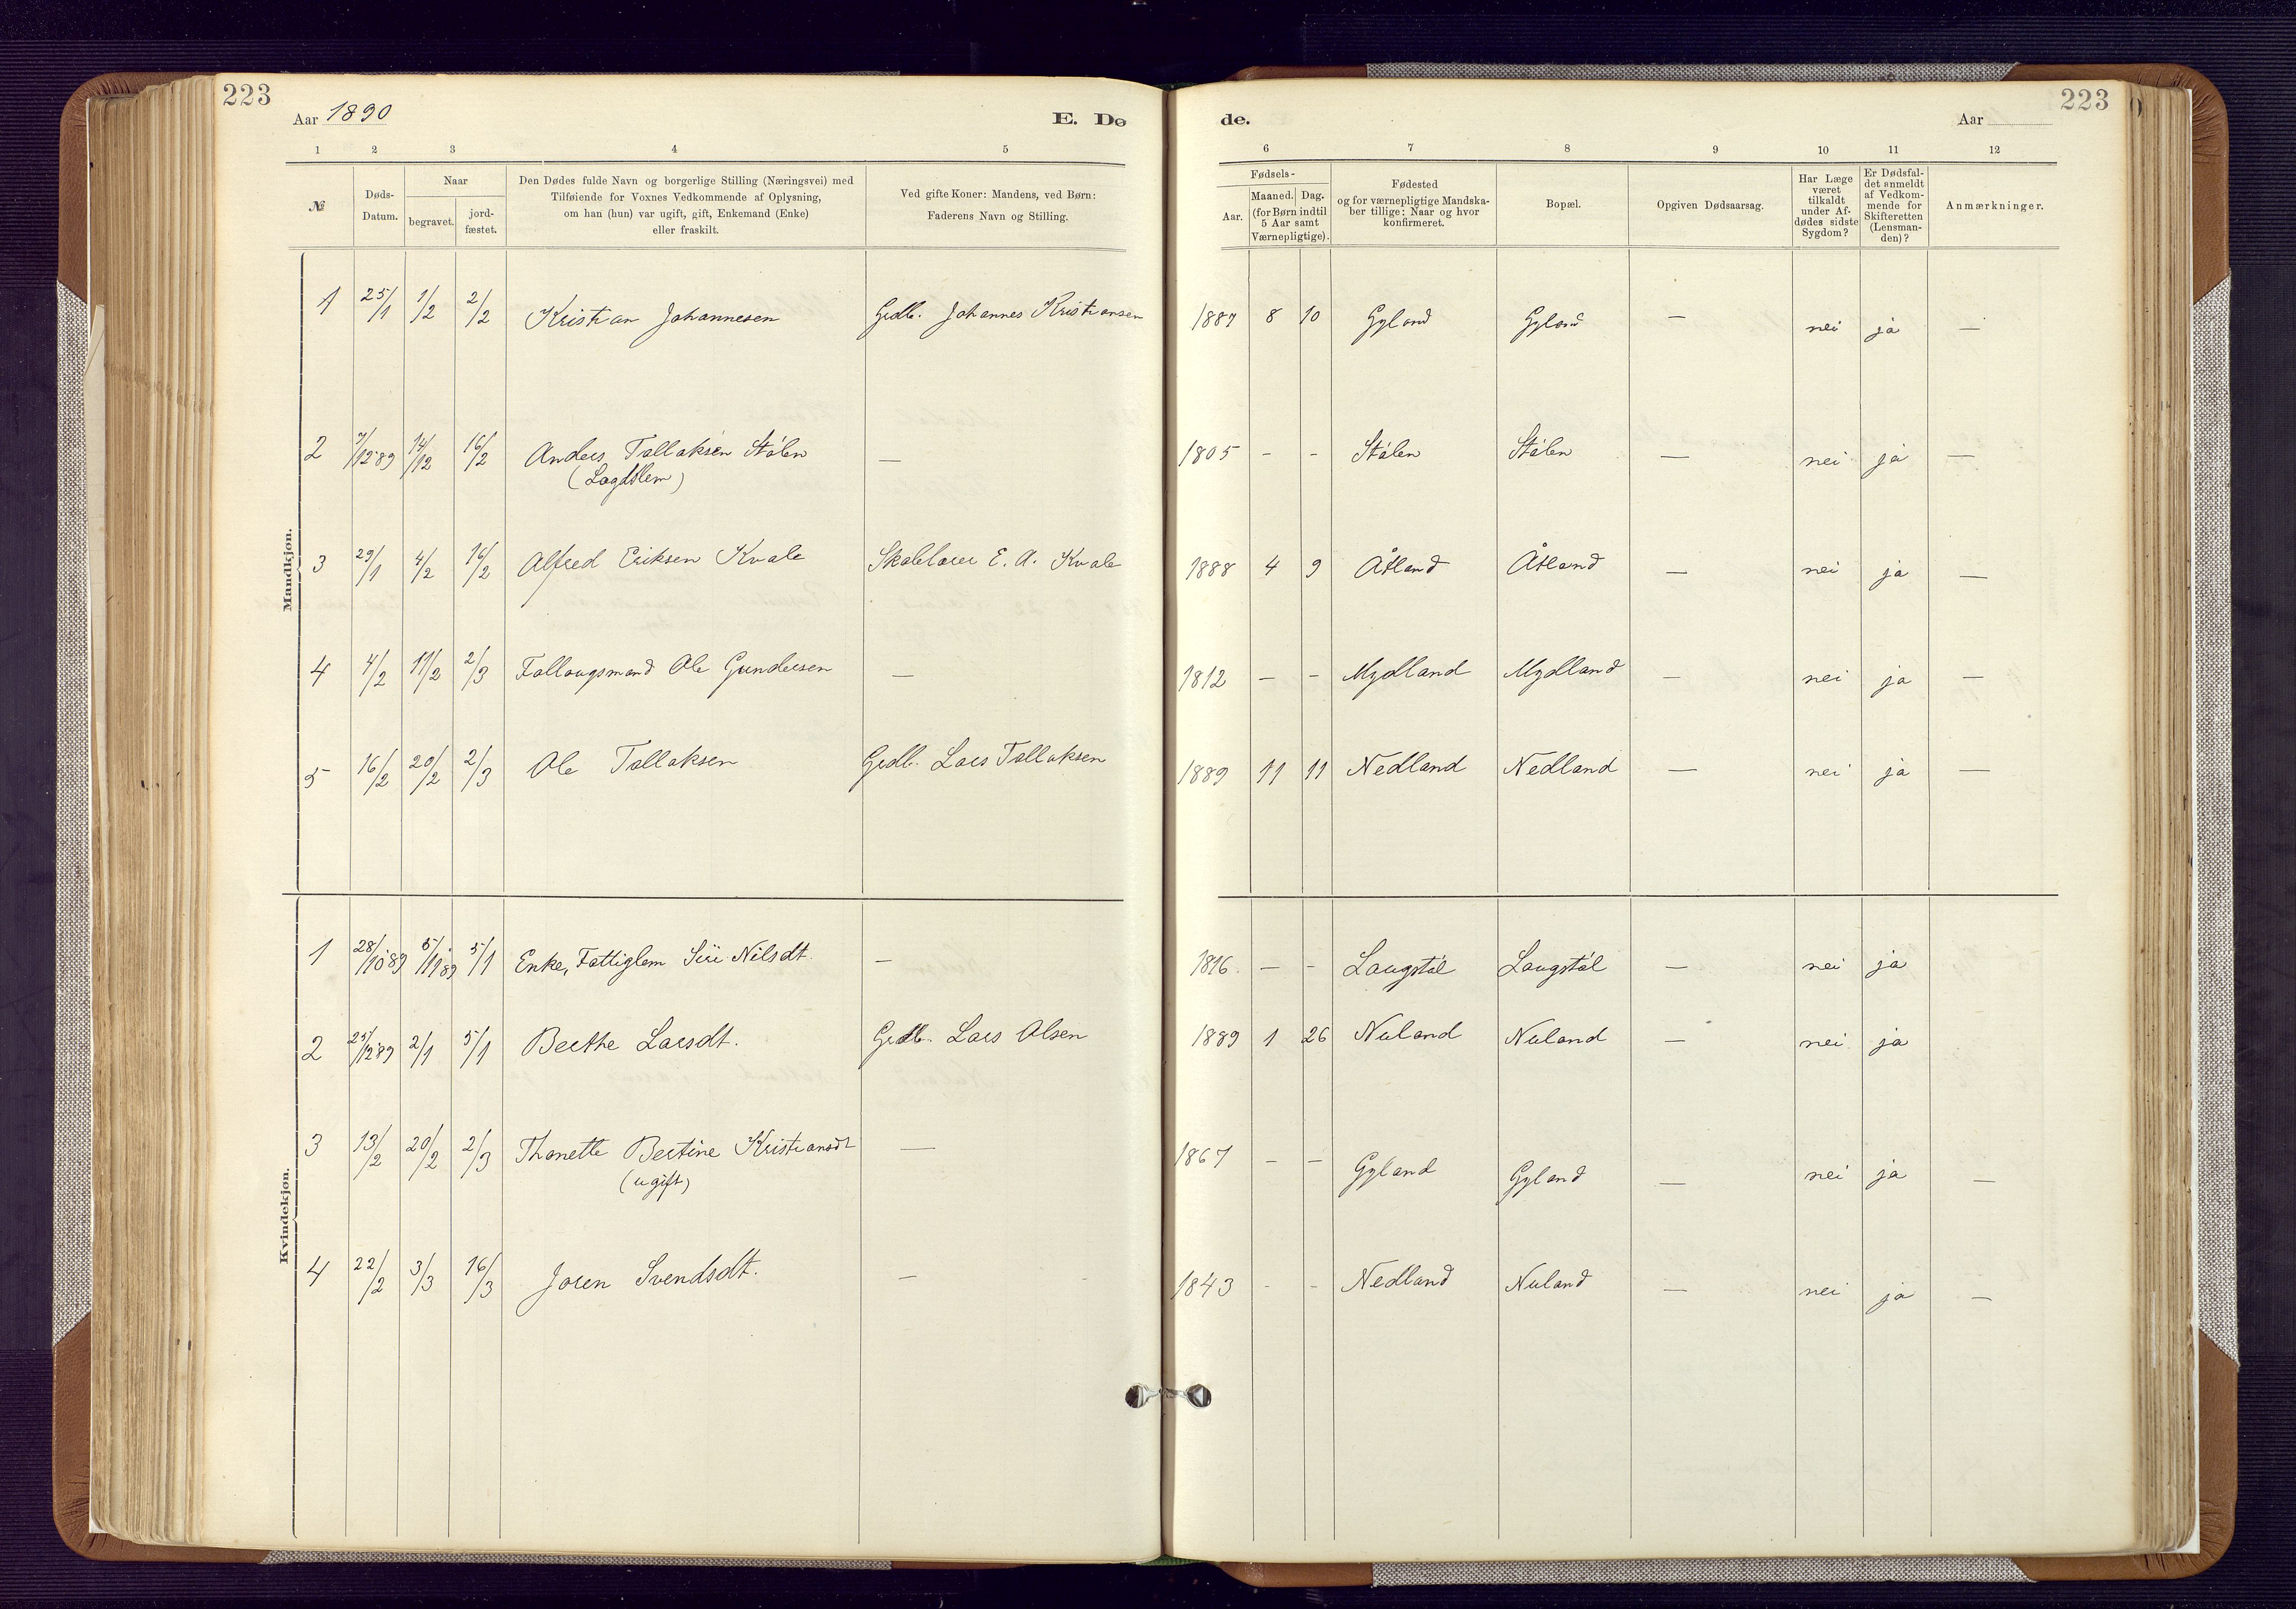 223
Aar 1890
E. Dø
1 2 3 4 5
№
Døds-
Datum.
Naar
begravet.
jord-
fæstet.
Den Dødes fulde Navn og borgerlige Stilling (Næringsvei) med
Tilføiende for Voxnes Vedkommende af Oplysning,
om han (hun) var ugift, gift, Enkemand (Enke)
eller fraskilt.
Ved gifte Koner: Mandens, ved Børn:
Faderens Navn og Stilling.
Mandkjøn.
1 25/1 1/2 2/2 Kristian Johannesen Grdb. Johannes Kristiansen
2 7/12 89 14/12 16/2 Anders Tallaksen Stålen —
(Lægdslem)
3 29/1 4/2 16/2 Alfred Eriksen Kvale Skolelærer E. A. Kvale
4 4/2 11/2 2/3 Ole Gundersen —
5 16/2 20/2 2/3 Ole Tallaksen Grdb. Lars Tallaksen
Kvindekjøn.
1 28/10 89 5/11 89 5/1 Enke, Fattiglem Siri Nilsdt. —
2 25/12 89 2/1 5/1 Berthe Larsdt. Grdb. Lars Olsen
3 13/2 20/2 2/3 Thonette Bertine Kristiansdt —
(ugift)
4 22/2 3/3 16/3 Joren Svendsdt. —
223
de.
Aar
6 7 8 9 10 11 12
Fødsels-
Aar.
Maaned. Dag.
(for Børn indtil
5 Aar samt
Værnepligtige).
Fødested
og for værnepligtige Mandska-
ber tillige: Naar og hvor
konfirmeret.
Bopæl.
Opgiven Dødsaarsag.
Har Læge
været
tilkaldt
under Af-
dødes sidste
Sygdom?
Er Dødsfal-
det anmeldt
af Vedkom-
mende for
Skifteretten
(Lensman-
den)?
Anmærkninger.
1887 8 10 Gyland Gyland — nei ja —
1805 - - Stålen Stålen — nei ja —
1888 4 9 Åtland Åtland — nei ja —
1812 - - Mydland Mydland — nei ja —
1889 11 11 Nedland Nedland — nei ja —
1816. — - Laugstøl Laugstøl — nei ja
1889 1 26 Nuland Nuland — nei ja
1867 - - Gyland Gyland — nei ja —
1843 - - Nedland Nuland — nei ja —